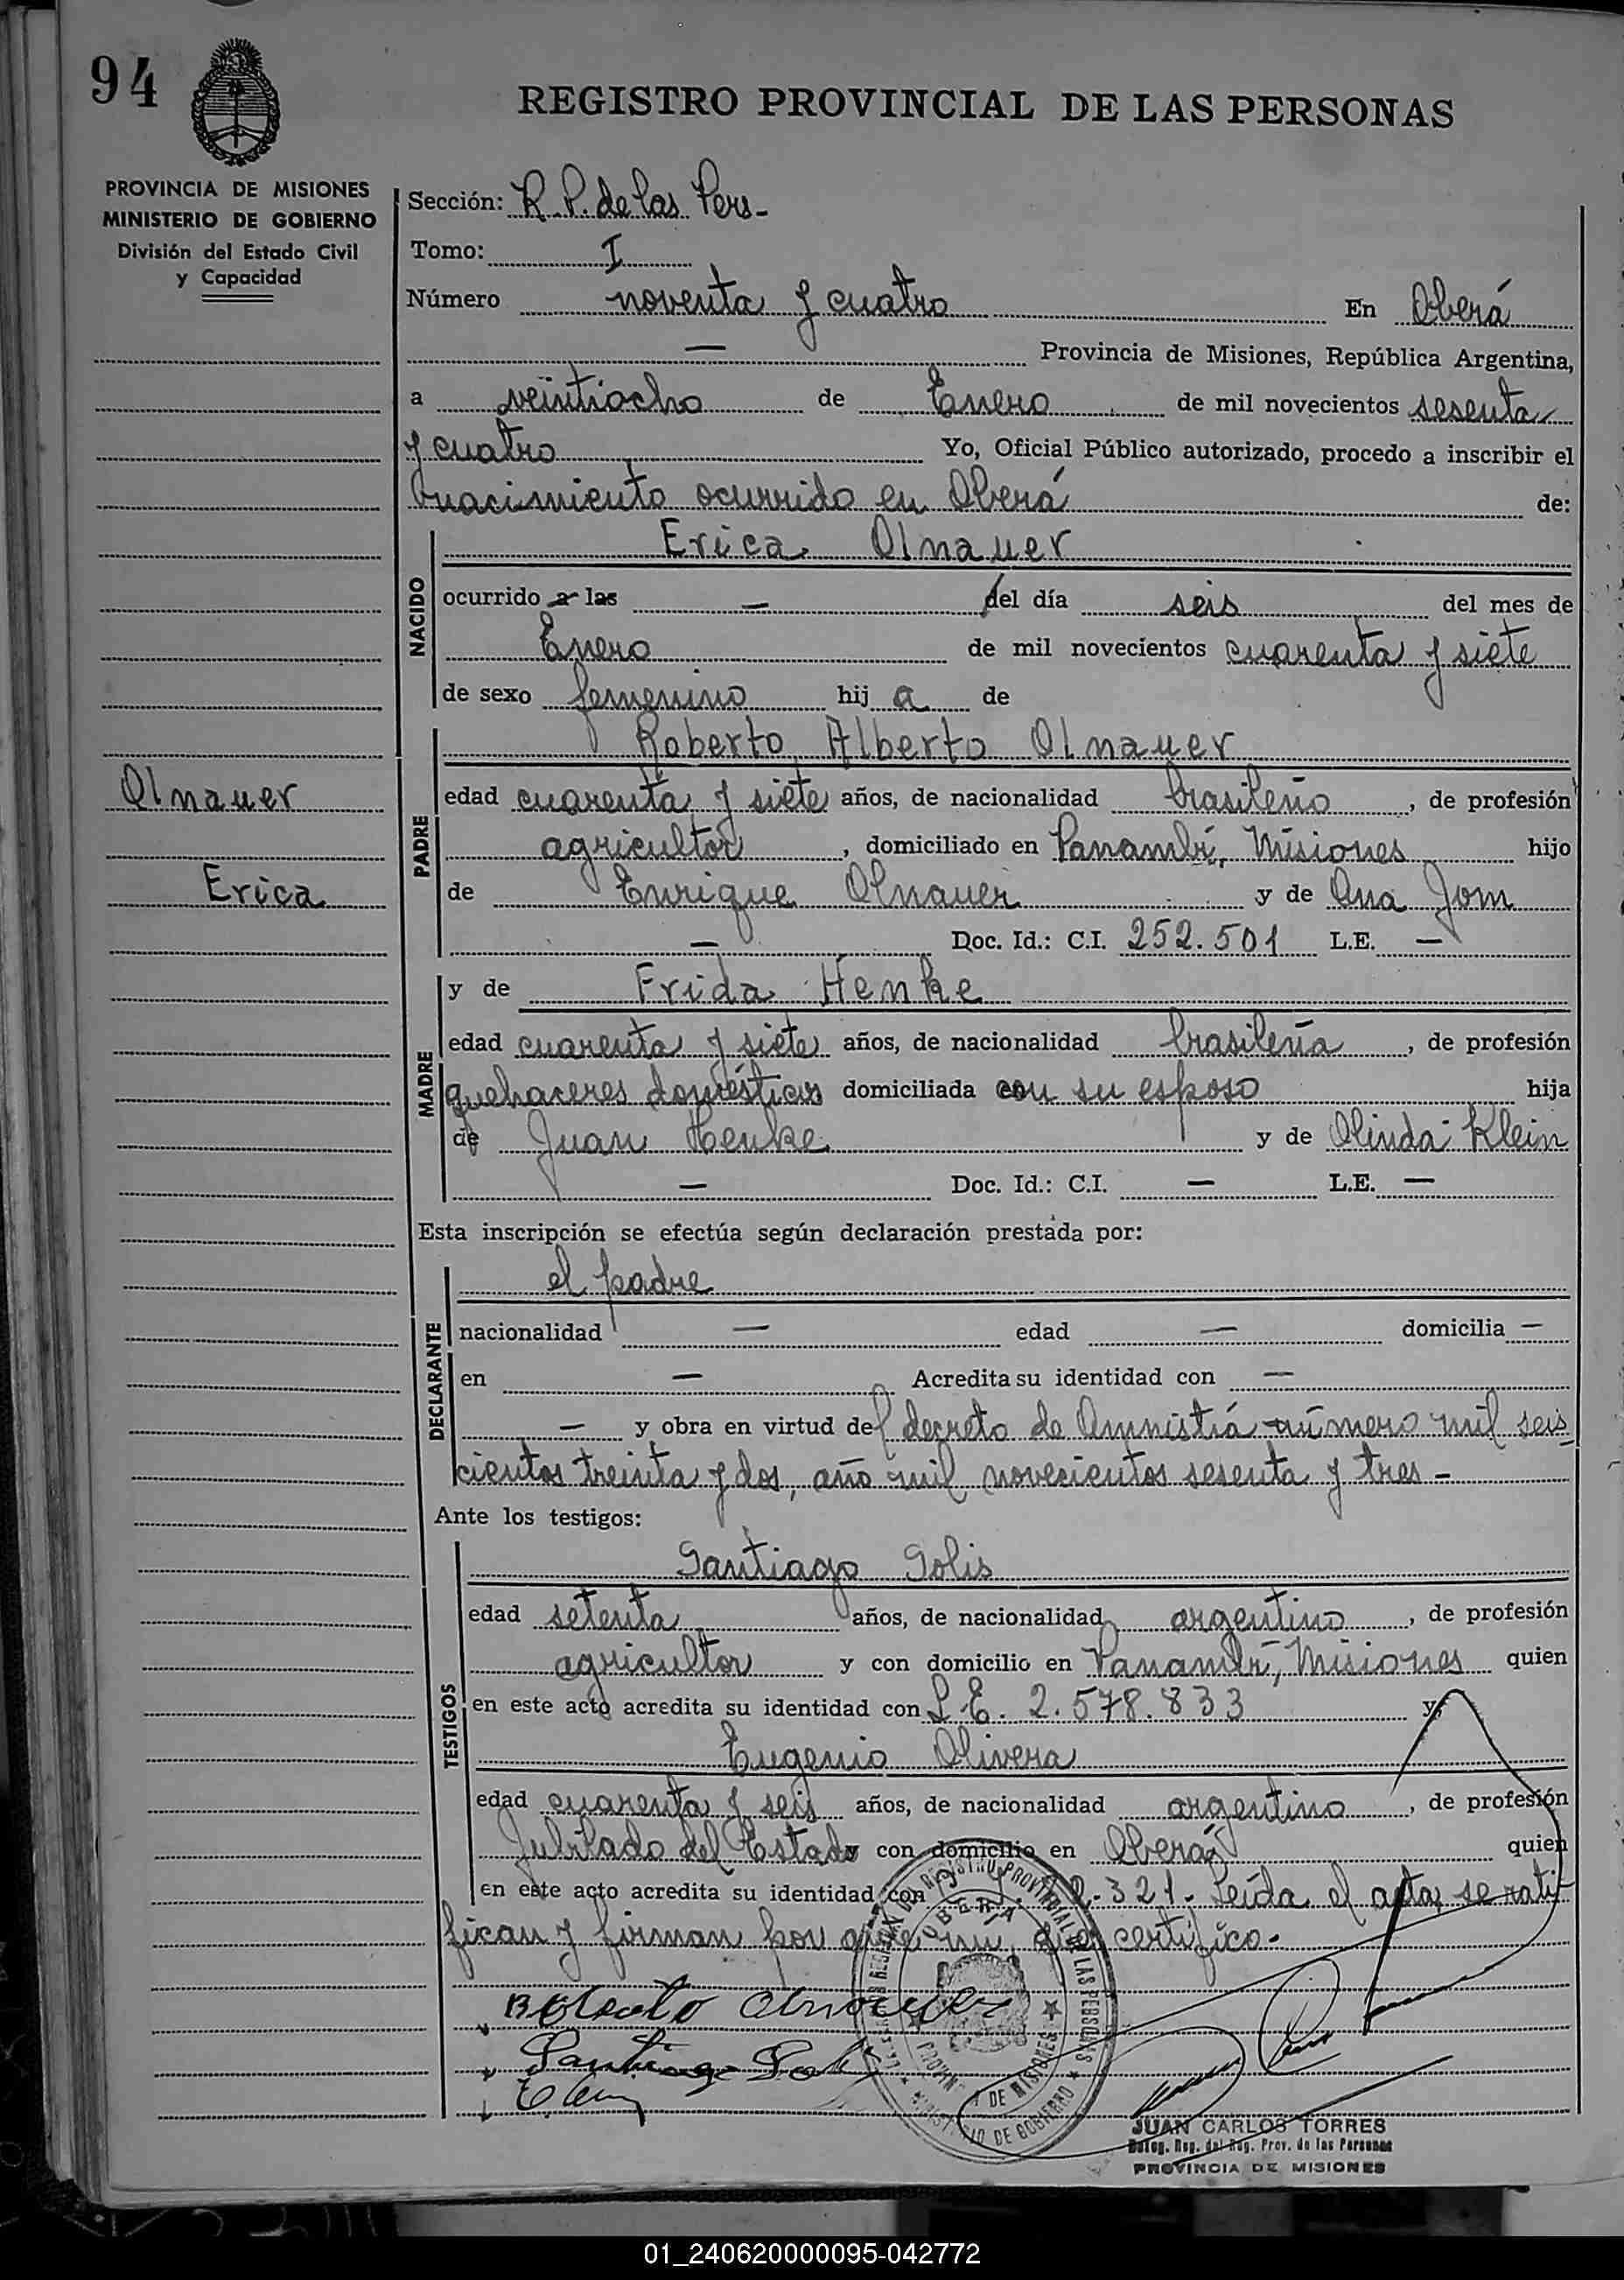 94
REGISTRO PROVINCIAL DE LAS PERSONAS
PROVINCIA DE MISIONES
MINISTERIO DE GOBIERNO
División del Estado Civil
y Capacidad
Sección: R. P. de las Pers-
Tomo: I
Número noventa y cuatro En Oberá
— Provincia de Misiones, República Argentina,
a veintiocho de Enero de mil novecientos sesenta
y cuatro Yo, Oficial Público autorizado, procedo a inscribir el
nacimiento ocurrido en Oberá de:
NACIDO
Erica Olnauer
ocurrido a las — del día seis del mes de
Enero de mil novecientos cuarenta y siete
de sexo femenino hij a de
Olnauer
Erica
PADRE
Roberto Alberto Olnauer
edad cuarenta y siete años, de nacionalidad brasileño, de profesión
agricultor, domiciliado en Panambí, Misiones hijo
de Enrique Olnauer y de Ana Jom
— Doc. Id.: C.I. 252.501 L.E. —
MADRE
y de Frida Henke
edad cuarenta y siete años, de nacionalidad brasileña, de profesión
quehaceres domésticos domiciliada con su esposo hija
de Juan Henke y de Olinda Klein
— Doc. Id.: C.I. — L.E. —
Esta inscripción se efectúa según declaración prestada por:
DECLARANTE
el padre
nacionalidad — edad — domicilia —
en — Acredita su identidad con —
— y obra en virtud del decreto de Amnistía número mil seis
cientos treinta y dos, año mil novecientos sesenta y tres -
Ante los testigos:
TESTIGOS
Santiago Solis
edad setenta años, de nacionalidad argentino, de profesión
agricultor y con domicilio en Panambí, Misiones quien
en este acto acredita su identidad con L.E. 2.578.833 y
Eugenio Olivera
edad cuarenta y seis años, de nacionalidad argentino, de profesión
Jubilado del Estado con domicilio en Oberá quien
en este acto acredita su identidad con 2.321. Leída el acta, se rati
fican y firman por ante mí, que certifico.
Roberto Olnauer
Santiago Solis
REGISTRO PROVINCIAL DE LAS PERSONAS
OBERÁ
PROVINCIA DE MISIONES
MINISTERIO DE GOBIERNO
JUAN CARLOS TORRES
Deleg. Reg. del Reg. Prov. de las Personas
PROVINCIA DE MISIONES
01_240620000095-042772